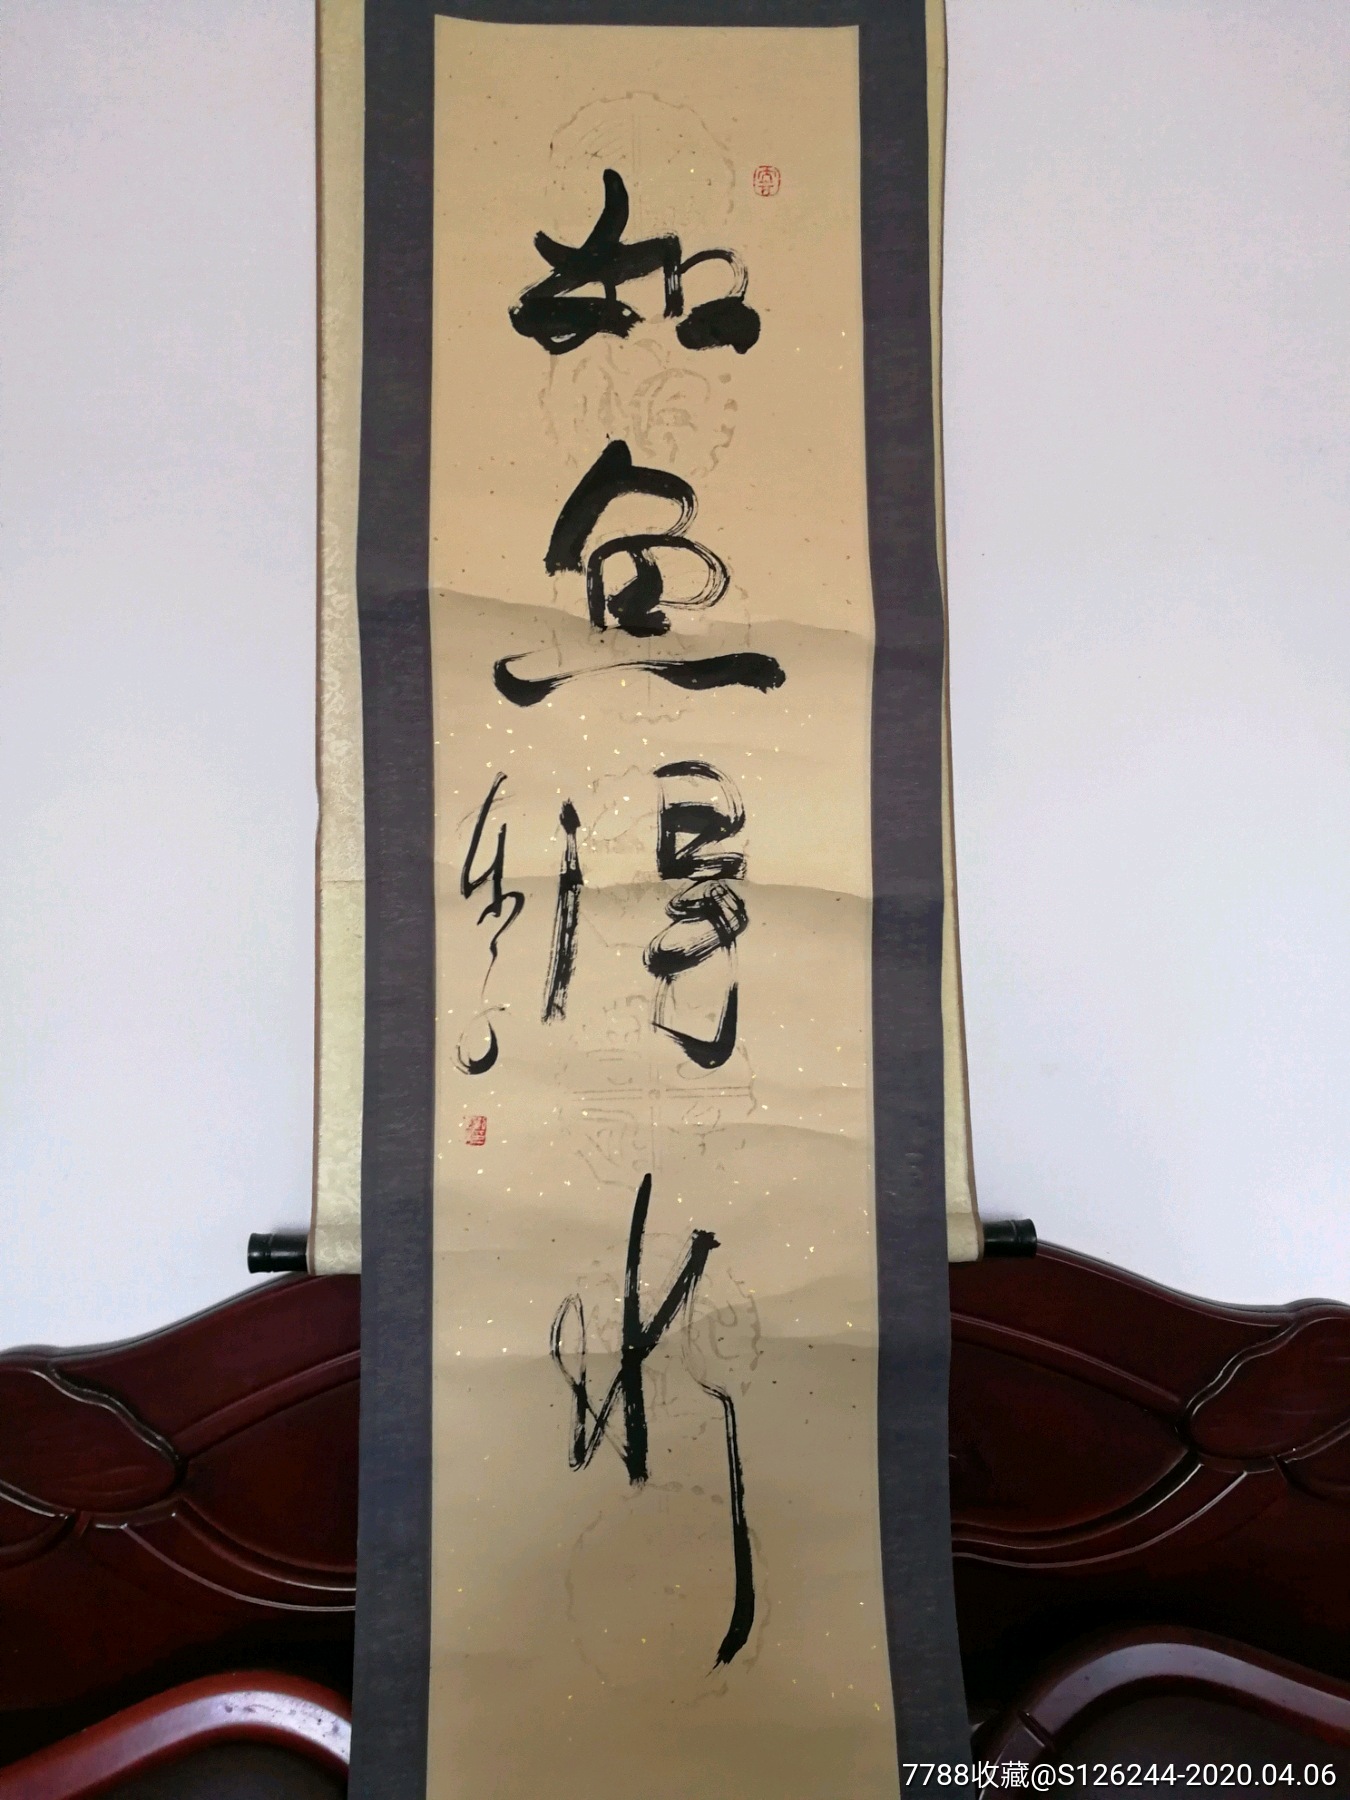 如魚得水
7788收藏@S126244-2020.04.06